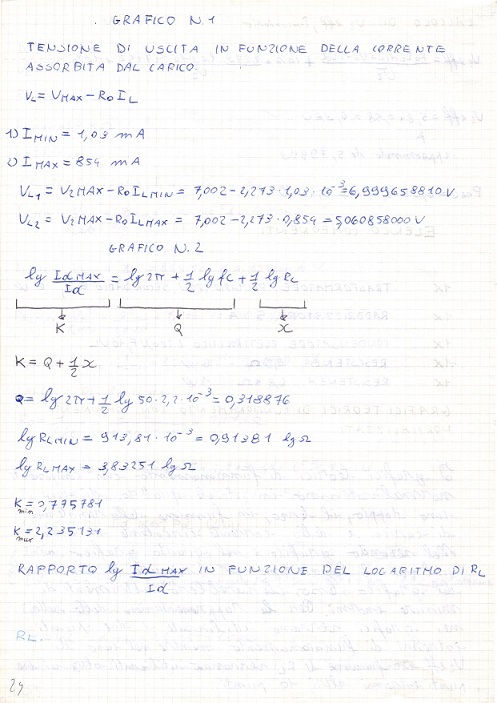 GRAFICO N.1
TENSIONE DI USCITA IN FUNZIONE DELLA CORRENTE
ASSORBITA DAL CARICO.
VL = VMAX - R0 IL
1) IMIN = 1,03 mA
2) IMAX = 854 mA
VL1 = V2MAX - R0 ILMIN = 7,002 - 2,273 · 1,03 · 10⁻³ = 6,999658810 V
VL2 = V2MAX - R0 ILMAX = 7,002 - 2,273 · 0,854 = 5,060858000 V
GRAFICO N.2
lg Id MAX / Id = lg 2π + 1/2 lg fC + 1/2 lg RL
K Q X
K = Q + 1/2 X
Q = lg 2π + 1/2 lg 50 · 2,2 · 10⁻³ = 0,318876
lg RLMIN = 913,81 · 10⁻³ = 0,91381 lg Ω
lg RLMAX = 3,83251 lg Ω
K min = 0,775781
K max = 2,235131
RAPPORTO lg Id MAX / Id IN FUNZIONE DEL LOGARITMO DI RL
RL
24